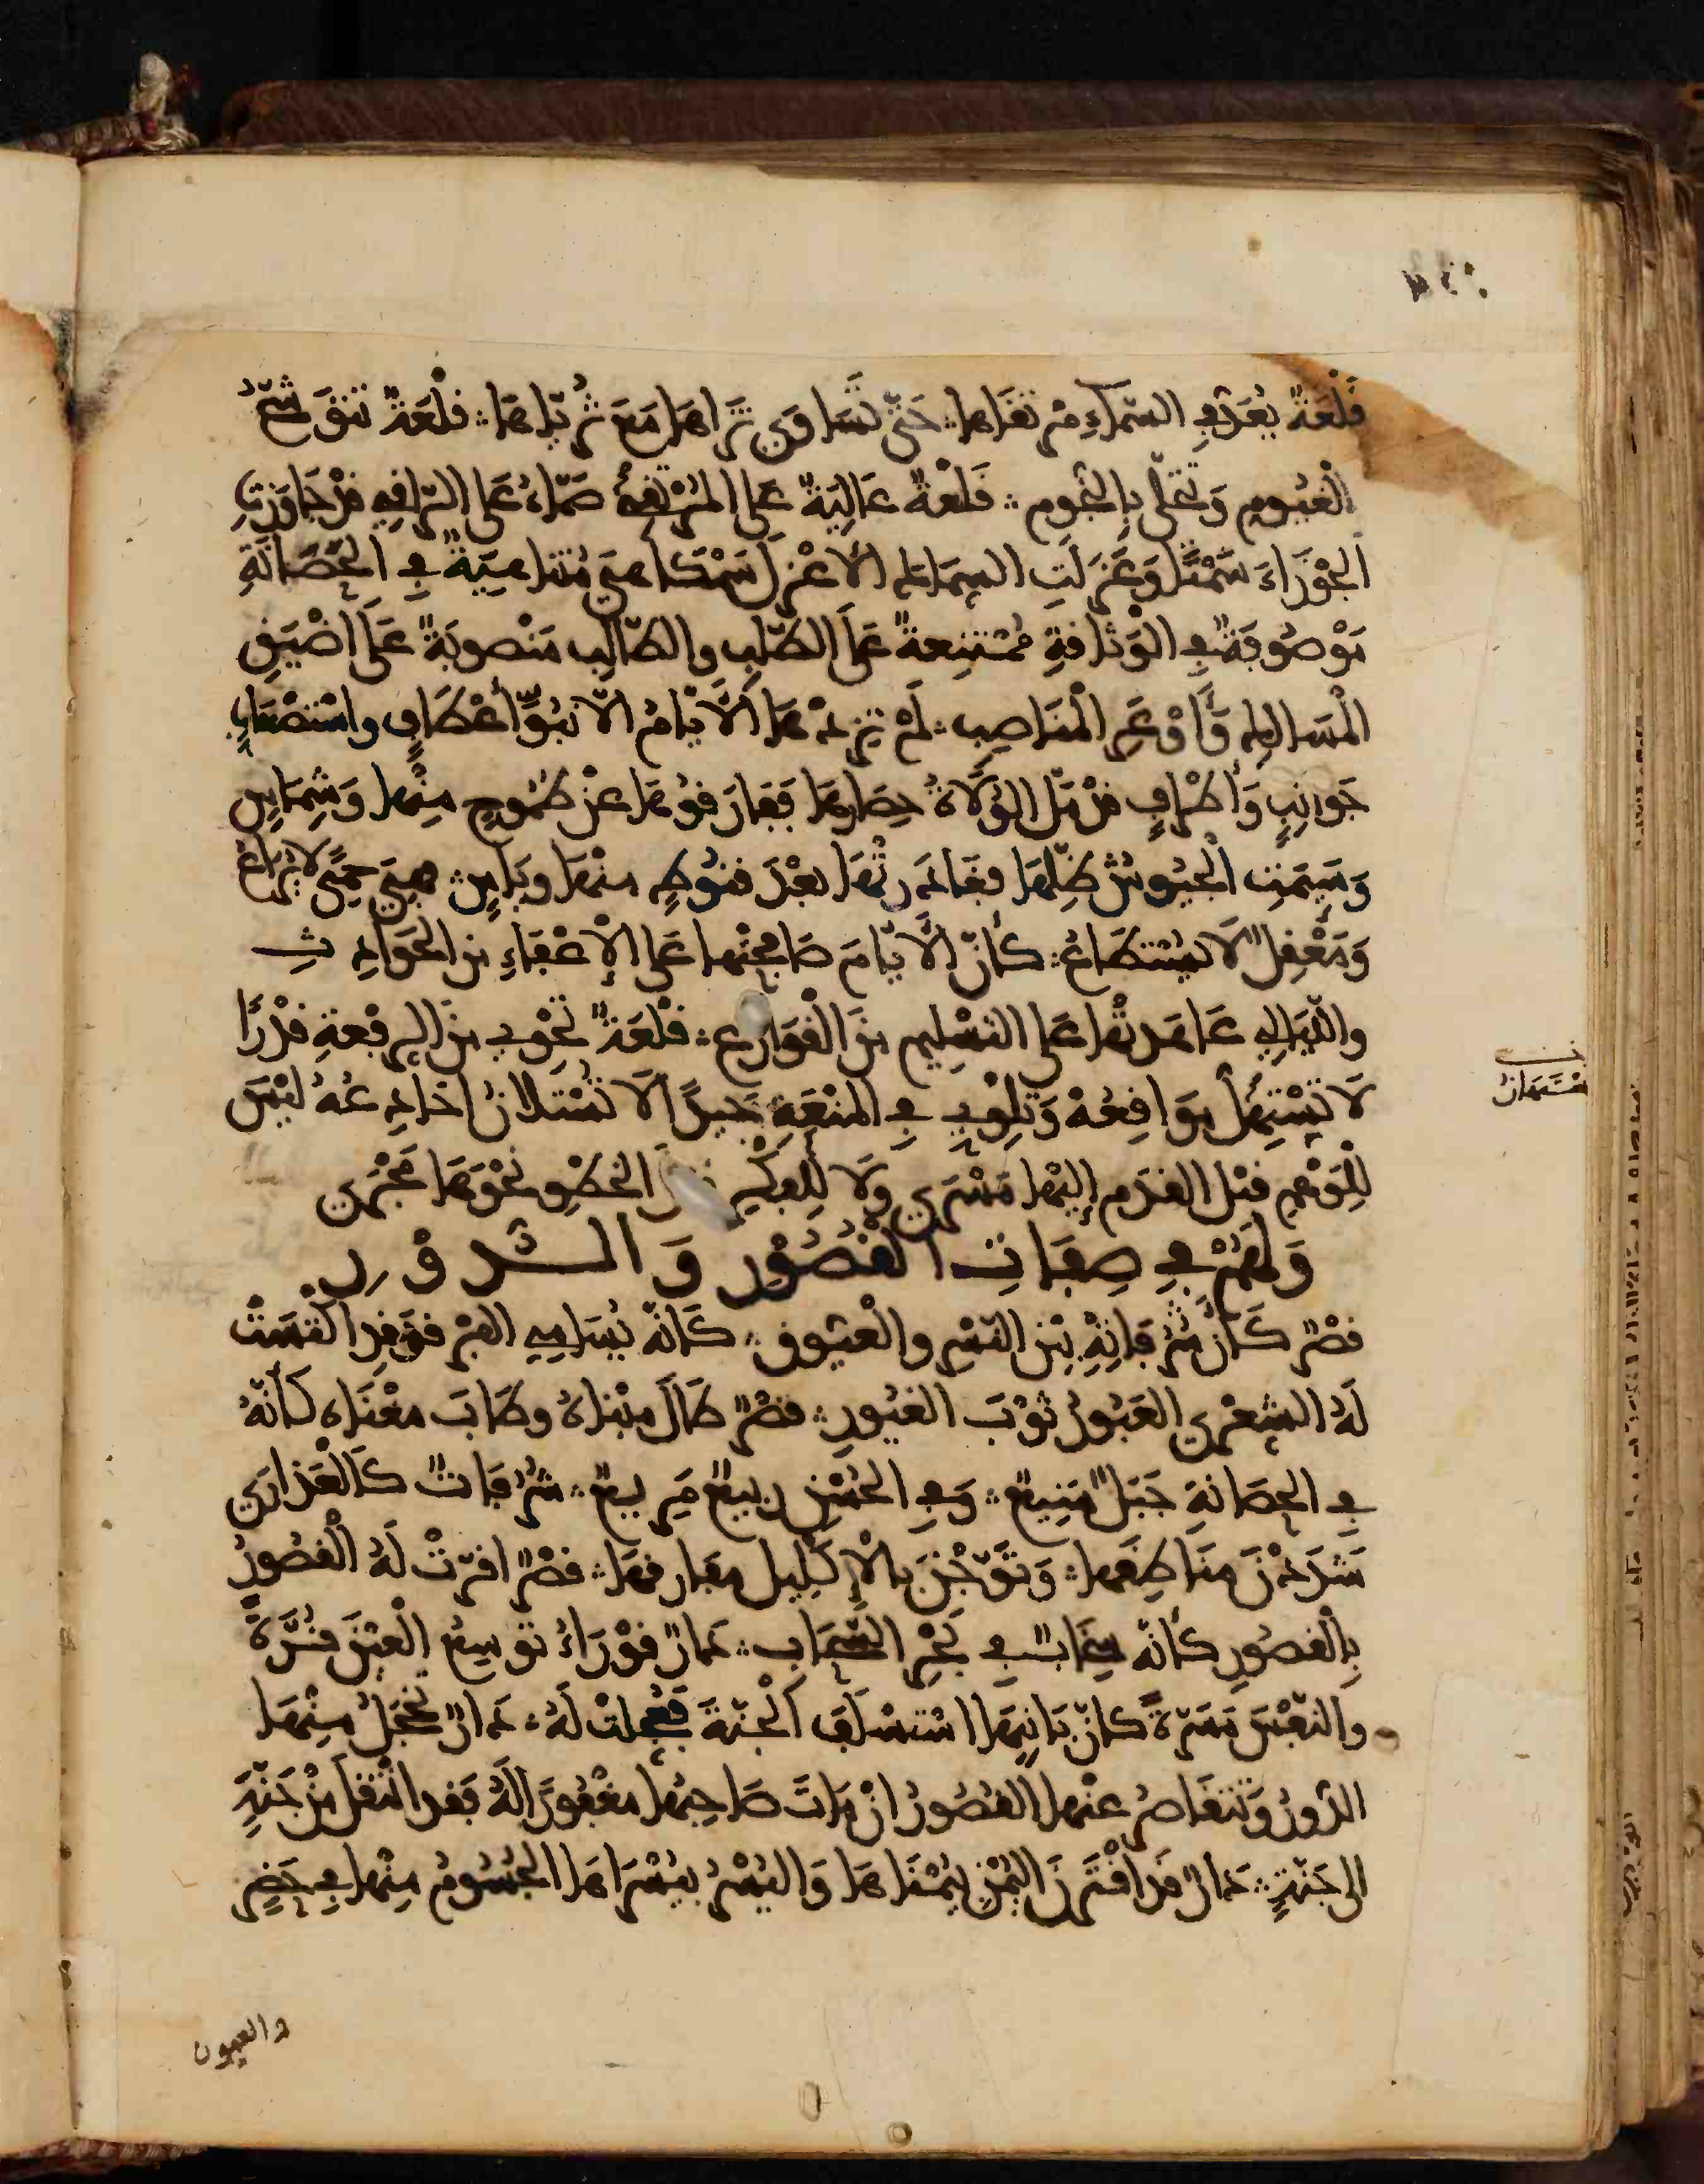 قلعةٌ بعد في السماءِ مرتقاها حتى تساوى ثراها مع ثُريّاها قلعةٌ تتوشّحُ
الغيوم وتحلّى بالنجوم قلعةٌ عاليةٌ على المرتقى صمّاءُ على الراقي قد جاوزتِ
الجوزاءَ سَمْتًا وعزلتِ السماك الأعزل سَمْكًا هي متناهيةٌ في الحصانةِ
موصوفةٌ في الوثاقةِ ممتنعةٌ على الطلبِ والطالبِ منصوبةٌ على أضيقِ
المسالك وأوعر المناصب لم تزدها الأيّامُ إلا نبوَّ أعطافٍ واستصعابِ
جوانبٍ وأطرافٍ قد ملّ الولاةُ حصارها ففارقوها عن طموحٍ منها وشماسٍ
وسئمت الجيوش ظلّها فغادرتها بعد قنوطٍ منها وياسٍ هي حمًى لا يُراعُ
ومعقلٌ لا يُستطاعُ كأنّ الأيّامَ صالحتها على الإعفاءِ من الحوادث
والليالي عاهدتها على التسليم من القوارع قلعةٌ تحوي من الرفعةِ قدرًا
لا تستهلُّ مواقعهُ وتلوي في المنعةِ جيدًا لا تستلانُ أخادعهُ ليسَ
للوهم قبل القدم إليها مسرى ولا للفكر الخطو نحوها مجرى
ولهم في صفات القصور والدور
قصرٌ كأنّ شرفاتِهِ بين النسر والعيّوق كأنّه يُسامي الفرقد فقد اكتست
لهُ الشعرى العبورُ ثوبَ الغيور قصرٌ طالَ مبناهُ وطابَ مغناه كأنّهُ
في الحصانةِ جبلٌ منيعٌ وفي الحسن ربيعٌ مريعٌ شرفاتٌ كالعذارى
شددنَ مناطقها وتوّجنَ بالإكليل مفارقها قصرٌ أقرّت لهُ القصورُ
بالقصورِ كأنّه سحابٌ في نحر السحاب دارٌ قوراءُ توسعُ العينَ قرّةً
والنفسَ مسرّةً كانّ بانيها استسلف الجنّةَ فعجلت لهُ دارٌ تخجلُ منها
الدّورُ وتتقاصرُ عنها القصورُ إن مات صاحبها مغفورًا لهُ فقد انتقل من جنّةٍ
إلى جنّةٍ دارٌ قد اقترنَ اليمن بيمناها واليسرُ بيسراها الجسومُ منها في حضرٍ
والعيون